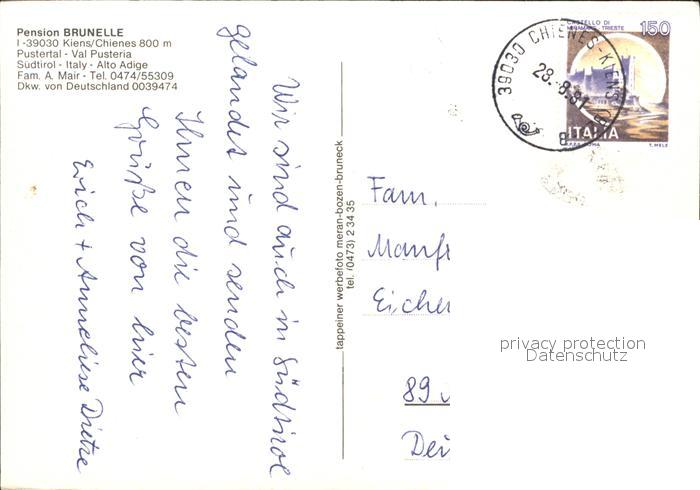 Pension BRUNELLE
I -39030 Kiens/Chienes 800 m
Pustertal - Val Pusteria
Südtirol - Italy - Alto Adige
Fam. A. Mair - Tel. 0474/55309
Dkw. von Deutschland 0039474
Wir sind auch in Südtirol
gelandet und senden
Ihnen die besten
Grüße von hier
Erich + Anneliese Dietze
tappeiner werbefoto meran-bozen-bruneck
tel. (0473) 2 34 35
CASTELLO DI
MIRAMARE TRIESTE
150
ITALIA
I.P.Z.S. ROMA
T. MELE
39030 CHIENES-KIENS (BZ)
28.-8.81
8
Fam.
Manfr
Eicher
89
Dei
privacy protection
Datenschutz